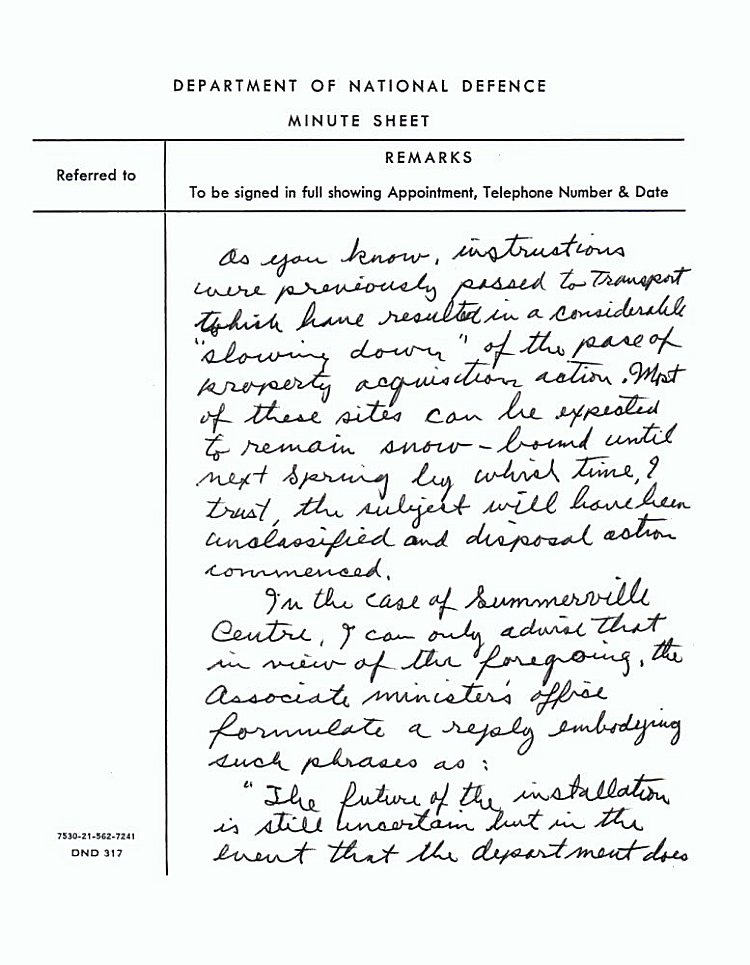 DEPARTMENT OF NATIONAL DEFENCE
MINUTE SHEET
Referred to
REMARKS
To be signed in full showing Appointment, Telephone Number & Date
As you know, instructions
were previously passed to Transport
which have resulted in a considerable
"slowing down" of the pace of
property acquisition action. Most
of these sites can be expected
to remain snow-bound until
next Spring by which time, I
trust, the subject will have been
unclassified and disposal action
commenced.
In the case of Summerville
Centre, I can only advise that
in view of the foregoing, the
Associate minister's office
formulate a reply embodying
such phrases as :
"The future of the installation
is still uncertain but in the
event that the department does
7530-21-562-7241
DND 317